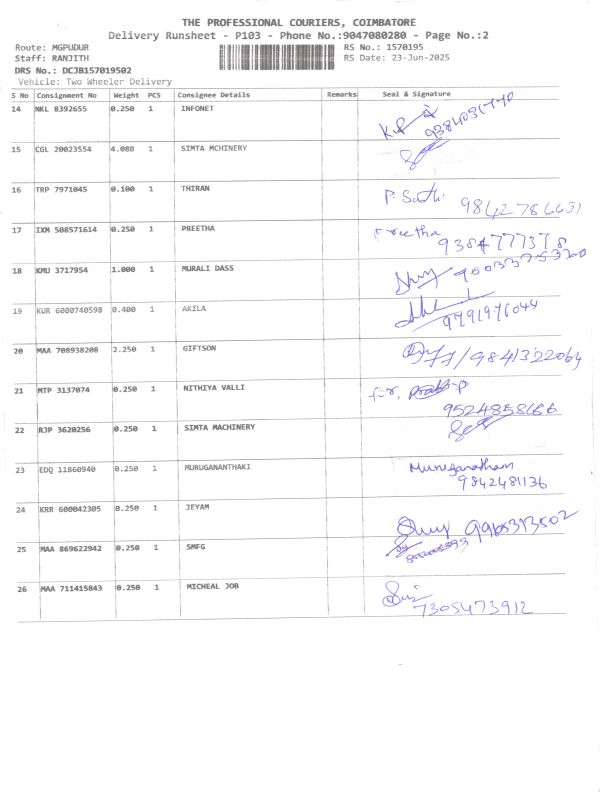 THE PROFESSIONAL COURIERS, COIMBATORE
Delivery Runsheet - P103 - Phone No.:9047080280 - Page No.:2
Route: MGPUDUR RS No.: 1570195
Staff: RANJITH RS Date: 23-Jun-2025
DRS No.: DCJB157019502
Vehicle: Two Wheeler Delivery
S No Consignment No Weight PCS Consignee Details Remarks Seal & Signature
14 NKL 8392655 0.250 1 INFONET
15 CGL 20023554 4.080 1 SIMTA MCHINERY
16 TRP 7971045 0.100 1 THIRAN
P. Sathi
17 IXM 508571614 0.250 1 PREETHA Preetha
9384777378
18 KMU 3717954 1.000 1 MURALI DASS
19 KUR 6000740598 0.400 1 AKILA
9791976044
20 MAA 708938208 2.250 1 GIFTSON 9841322064
21 MTP 3137074 0.250 1 NITHIYA VALLI
9524858166
22 RJP 3620256 0.250 1 SIMTA MACHINERY
23 EDQ 11860940 0.250 1 MURUGANANTHAKI Muruganatham
9842481136
24 KRR 600042305 0.250 1 JEYAM
9965313502
25 MAA 869622942 0.250 1 SMFG
26 MAA 711415843 0.250 1 MICHEAL JOB
7305473912